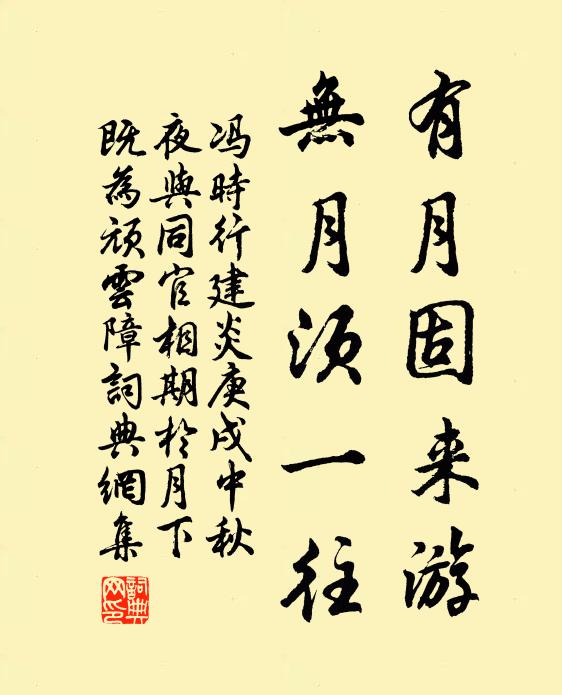 有月固来游
無月須一往
冯時行建炎庚戌中秋
夜與同官相期於月下
既為頑雲障詞典網集
詞典網印